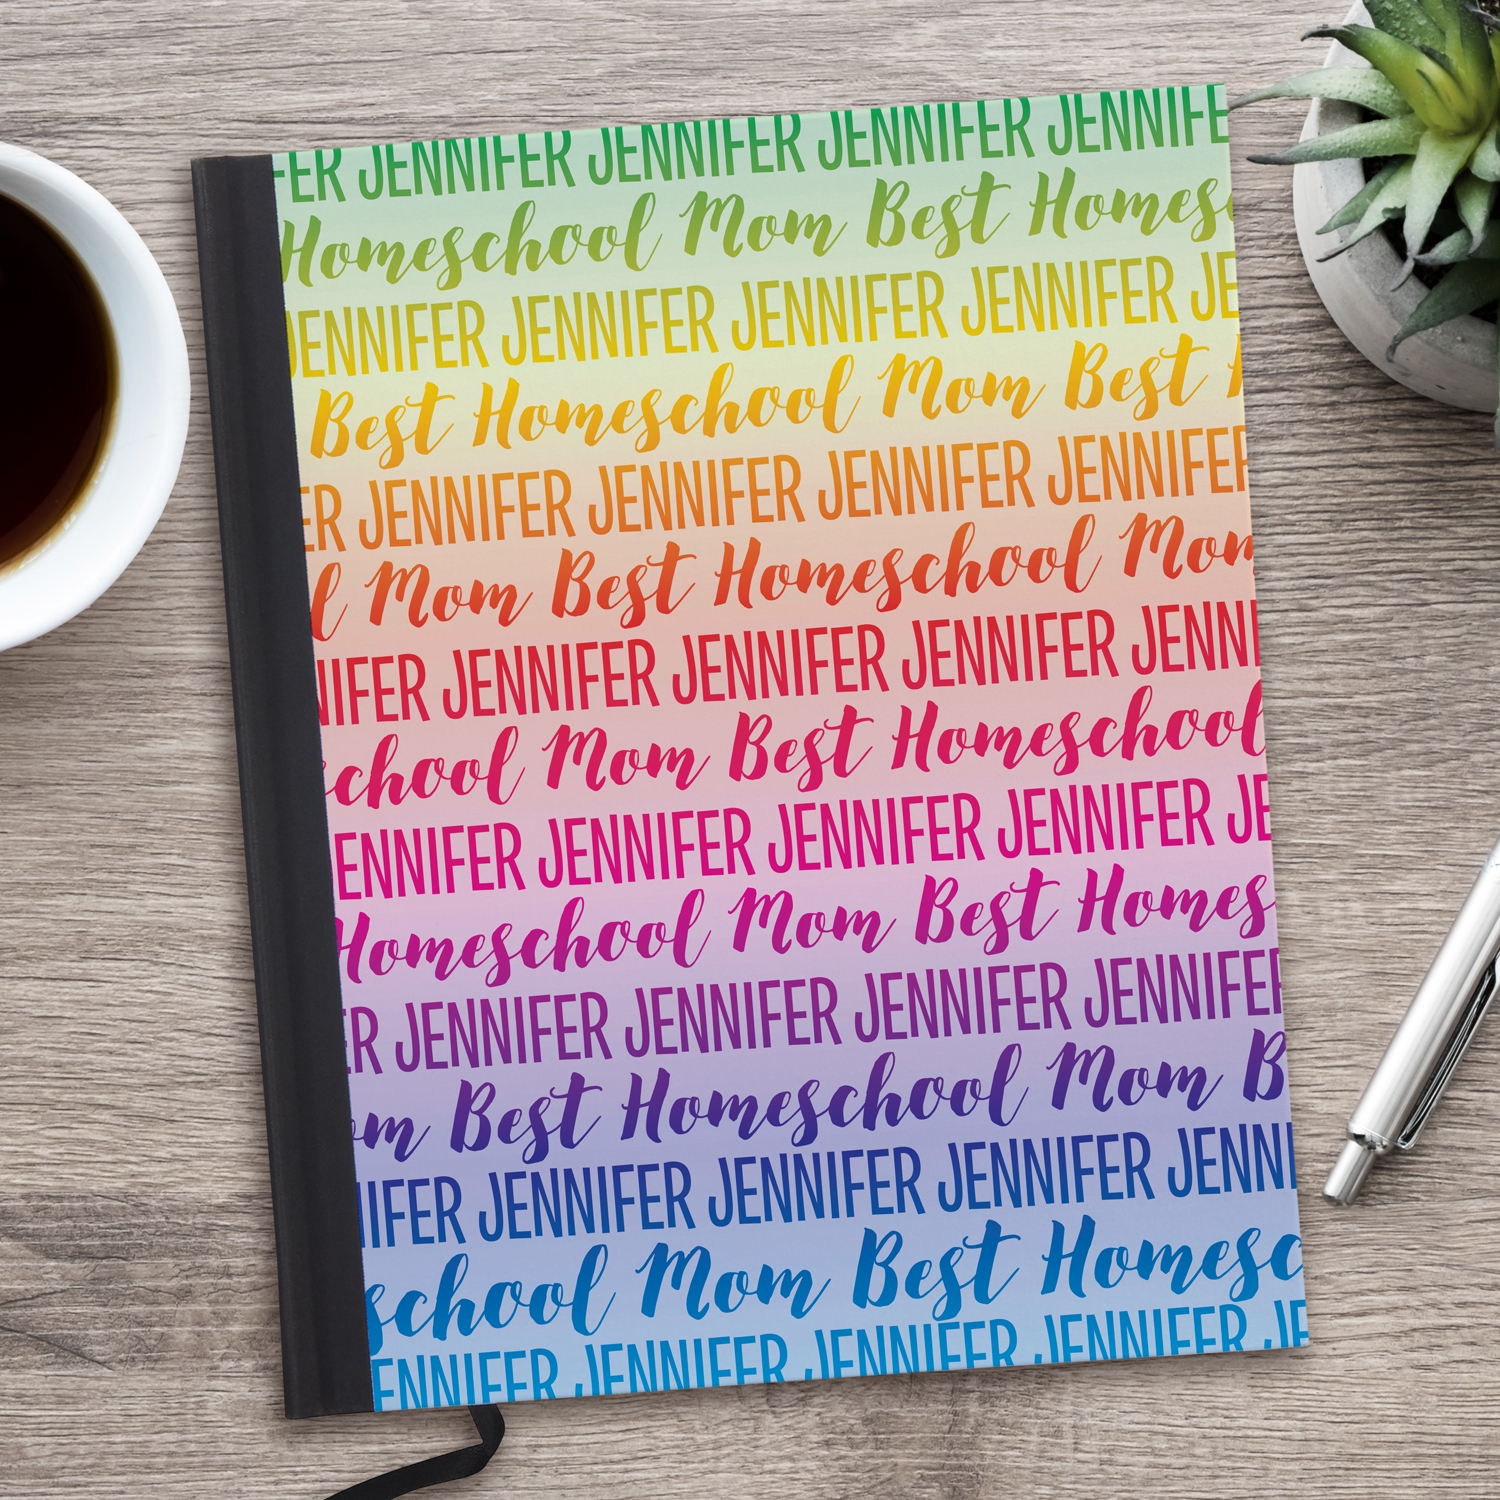 ER JENNIFER JENNIFER JENNIFER JENNIFE
Homeschool Mom Best Homes
JENNIFER JENNIFER JENNIFER JENNIFER JE
Best Homeschool Mom Best
ER JENNIFER JENNIFER JENNIFER JENNIFER
l Mom Best Homeschool Mom
NIFER JENNIFER JENNIFER JENNIFER JENN
chool Mom Best Homeschool
ENNIFER JENNIFER JENNIFER JENNIFER JE
Homeschool Mom Best Homes
ER JENNIFER JENNIFER JENNIFER JENNIFER
om Best Homeschool Mom B
IFER JENNIFER JENNIFER JENNIFER JENNI
school Mom Best Homesc
ENNIFER JENNIFER JENNIFER JENNIFER JE